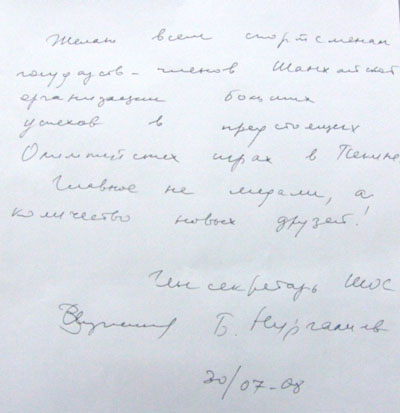 Желаю всем спортсменам
государств-членов Шанхайской
организации больших
успехов в предстоящих
Олимпийских играх в Пекине
Главное не медали, а
количество новых друзей!
Генсекретарь ШОС
Б. Нургалиев
30/07-08